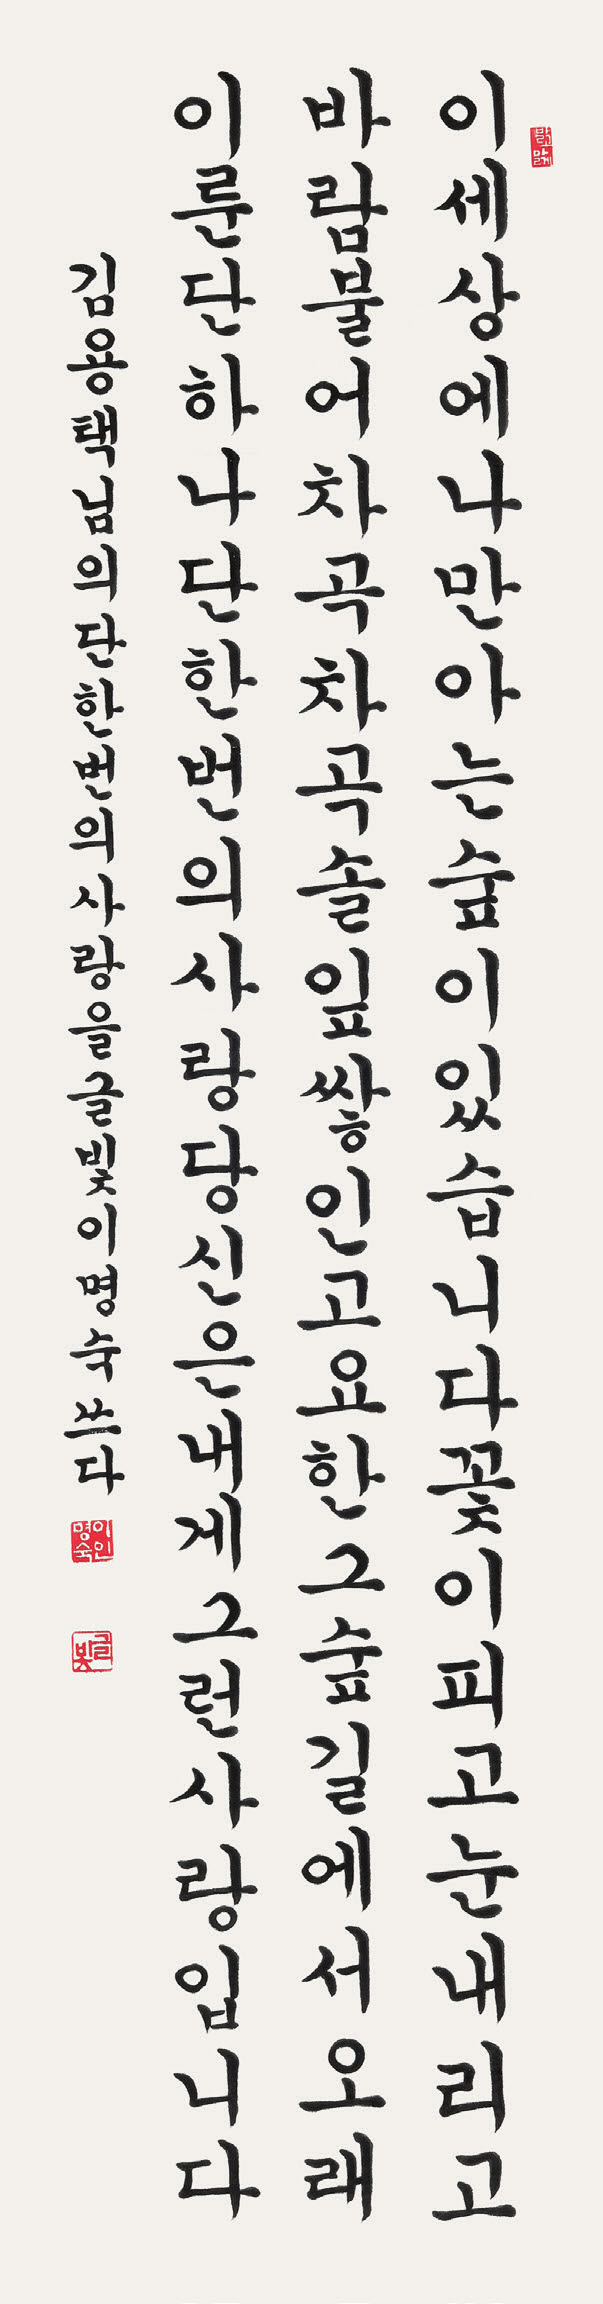 이세상에나만아는숲이있습니다꽃이피고눈내리고
바람불어차곡차곡솔잎쌓인고요한그숲길에서오래
이룬단하나단한번의사랑당신은내게그런사랑입니다
김용택님의단한번의사랑을글빛이명숙쓰다
이인명숙
글빛